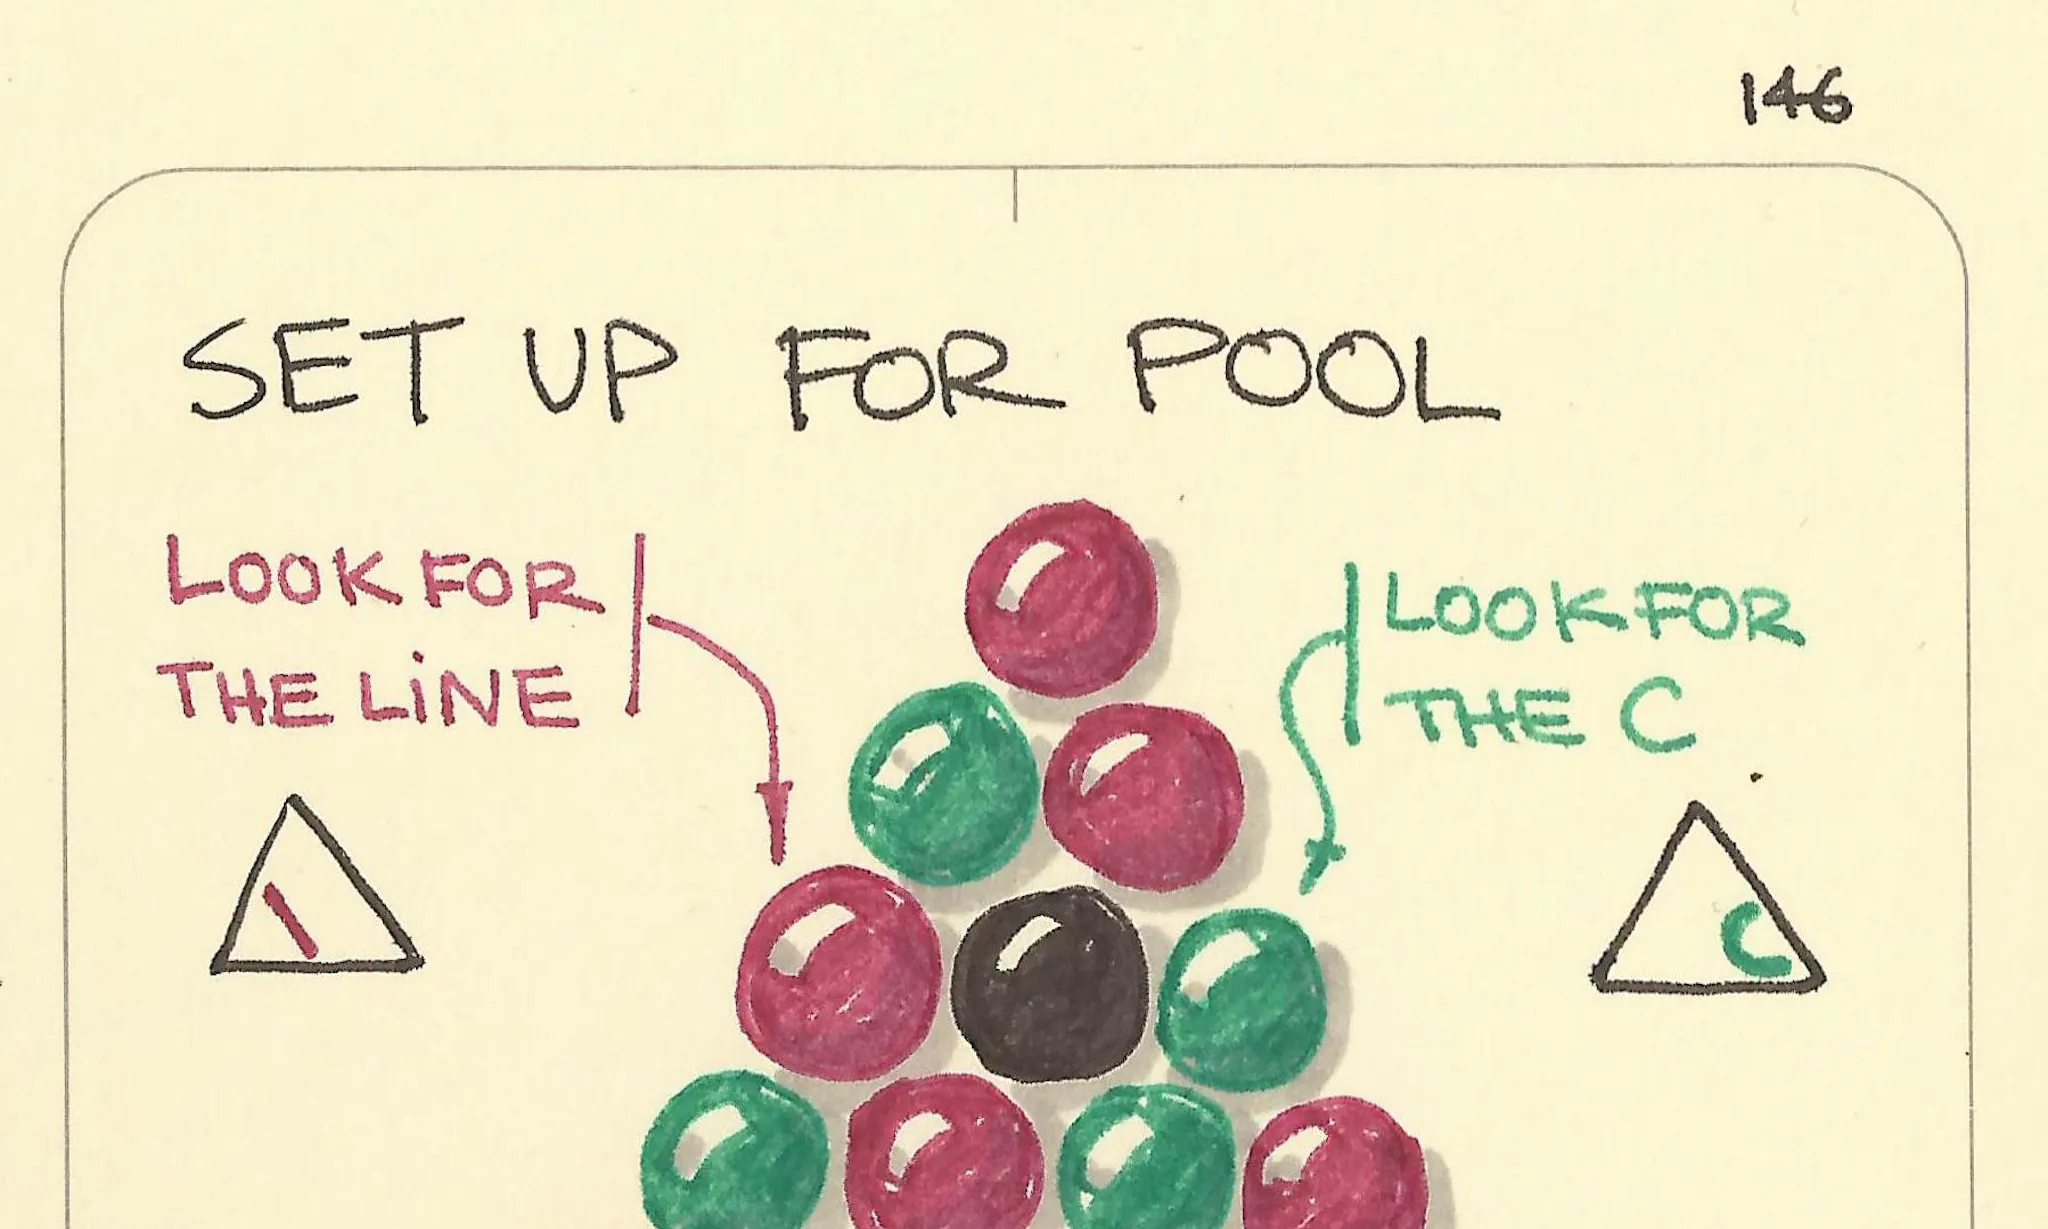 146
SET UP FOR POOL
LOOK FOR
THE LINE
LOOK FOR
THE C
C